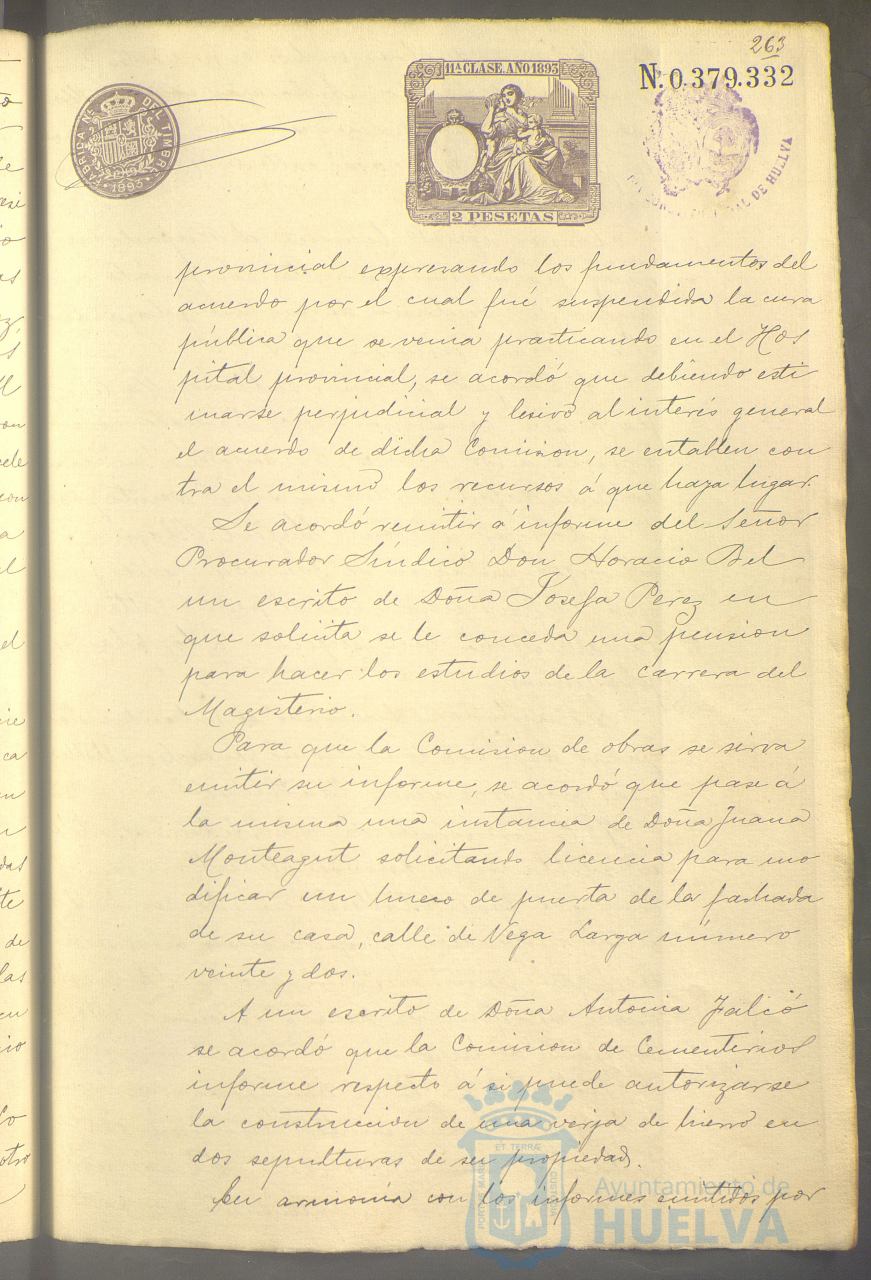 263
11ª CLASE. AÑO 1893
Nº 0.379.332
FABRICA NL. DEL TIMBRE
1893
2 PESETAS
DE HUELVA
provincial expresando los fundamentos del
acuerdo por el cual fué suspendida la cura
pública que se venia practicando en el Hos
pital provincial, se acordó que debiendo esti
marse perjudicial y lesivo al interés general
el acuerdo de dicha Comision, se entablen con
tra el mismo los recursos á que haya lugar.
Se acordó remitir á informe del Señor
Procurador Síndico Don Horacio Bel
un escrito de Doña Josefa Perez en
que solicita se le conceda una pension
para hacer los estudios de la carrera del
Magisterio.
Para que la Comision de obras se sirva
emitir su informe, se acordó que pase á
la misma una instancia de Doña Juana
Monteagut solicitando licencia para mo
dificar un hueco de puerta de la fachada
de su casa, calle de Vega Larga número
veinte y dos.
A un escrito de Doña Antonia Falcó
se acordó que la Comision de Cementerios
informe respecto á si puede autorizarse
la construccion de una verja de hierro en
dos sepulturas de su propiedad.
En armonia con los informes emitidos por
Ayuntamiento de
HUELVA